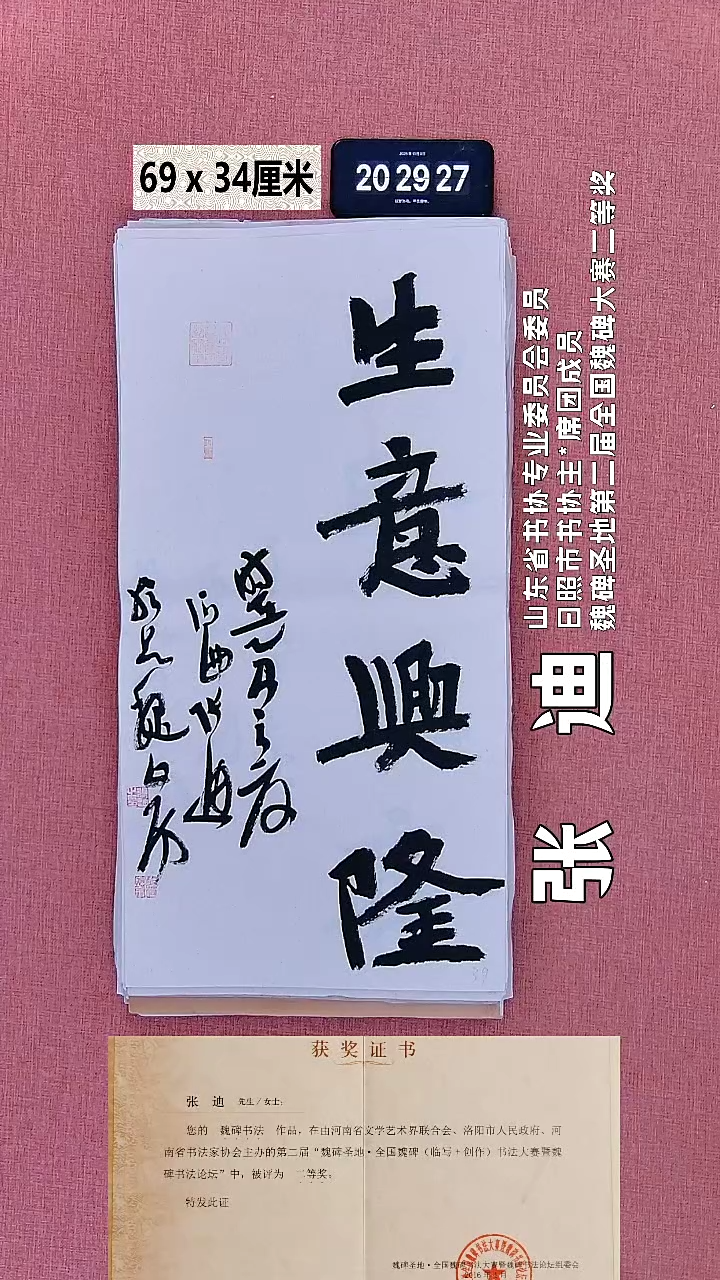 69 x 34厘米
20 29 27
生意興隆
山东省书协专业委员会委员
日照市书协主*席团成员
魏碑圣地第二届全国魏碑大赛二等奖
张 迪
获奖证书
张 迪 先生/女士:
您的 魏碑书法 作品，在由河南省文学艺术界联合会、洛阳市人民政府、河
南省书法家协会主办的第二届“魏碑圣地·全国魏碑（临写+创作）书法大赛暨魏
碑书法论坛”中，被评为 二等奖。
特发此证
魏碑圣地·全国魏碑书法大赛暨魏碑书法论坛组委会